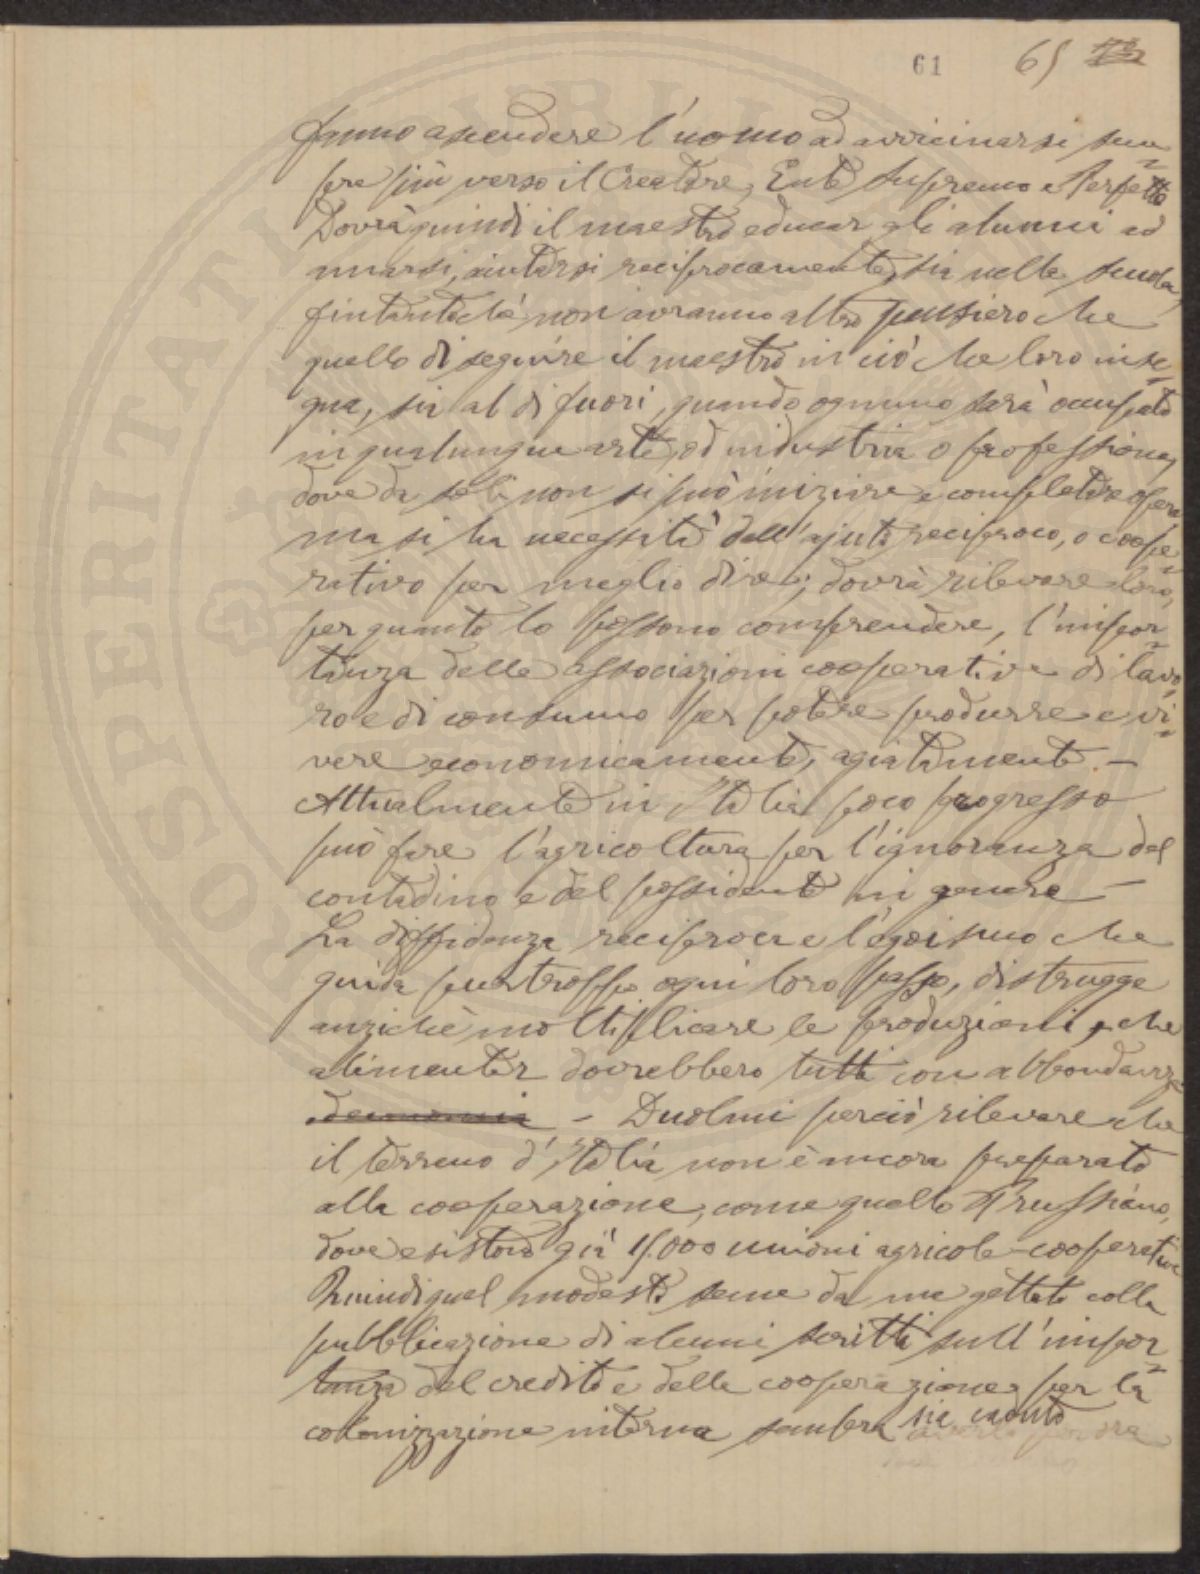 61 65
fanno ascendere l'uomo ad avvicinarsi sem=
pre più verso il Creatore, Ente Supremo e Perfetto
Dovrà quindi il maestro educar gli alunni ad
amarsi, aiutarsi reciprocamente, sia nella scuola,
fintantoché non avranno altro pensiero che
quello di seguire il maestro in ciò che loro inse=
gna, sia al di fuori, quando ognuno sarà occupato
in qualunque arte, od industria o professione,
dove da soli non si può iniziare e completare opere
ma si ha necessità dell'ajuto reciproco, o coope=
rativo per meglio dire; dovrà rilevare loro,
per quanto lo possono comprendere, l'impor=
tanza delle associazioni cooperative di lavo=
ro e di consumo per potere produrre e vi=
vere economicamente, agiatamente. —
Attualmente in Italia poco progresso
può fare l'agricoltura per l'ignoranza del
contadino e del possidente in genere —
La diffidenza reciproca e l'egoismo che
guida purtroppo ogni loro passo, distrugge
anziché moltiplicare le produzioni, che
alimentar dovrebbero tutti con abbondanza
– Duolmi perciò rilevare che
il terreno d'Italia non è ancora preparato
alla cooperazione, come quello Prussiano,
dove esistono già 15.000 unioni agricole-cooperative
Quindi quel modesto seme da me gettato colla
pubblicazione di alcuni scritti sull'impor=
tanza del credito e della cooperazione per la
colonizzazione interna sembra sia caduto
PROSPERITATI PUBLICAE